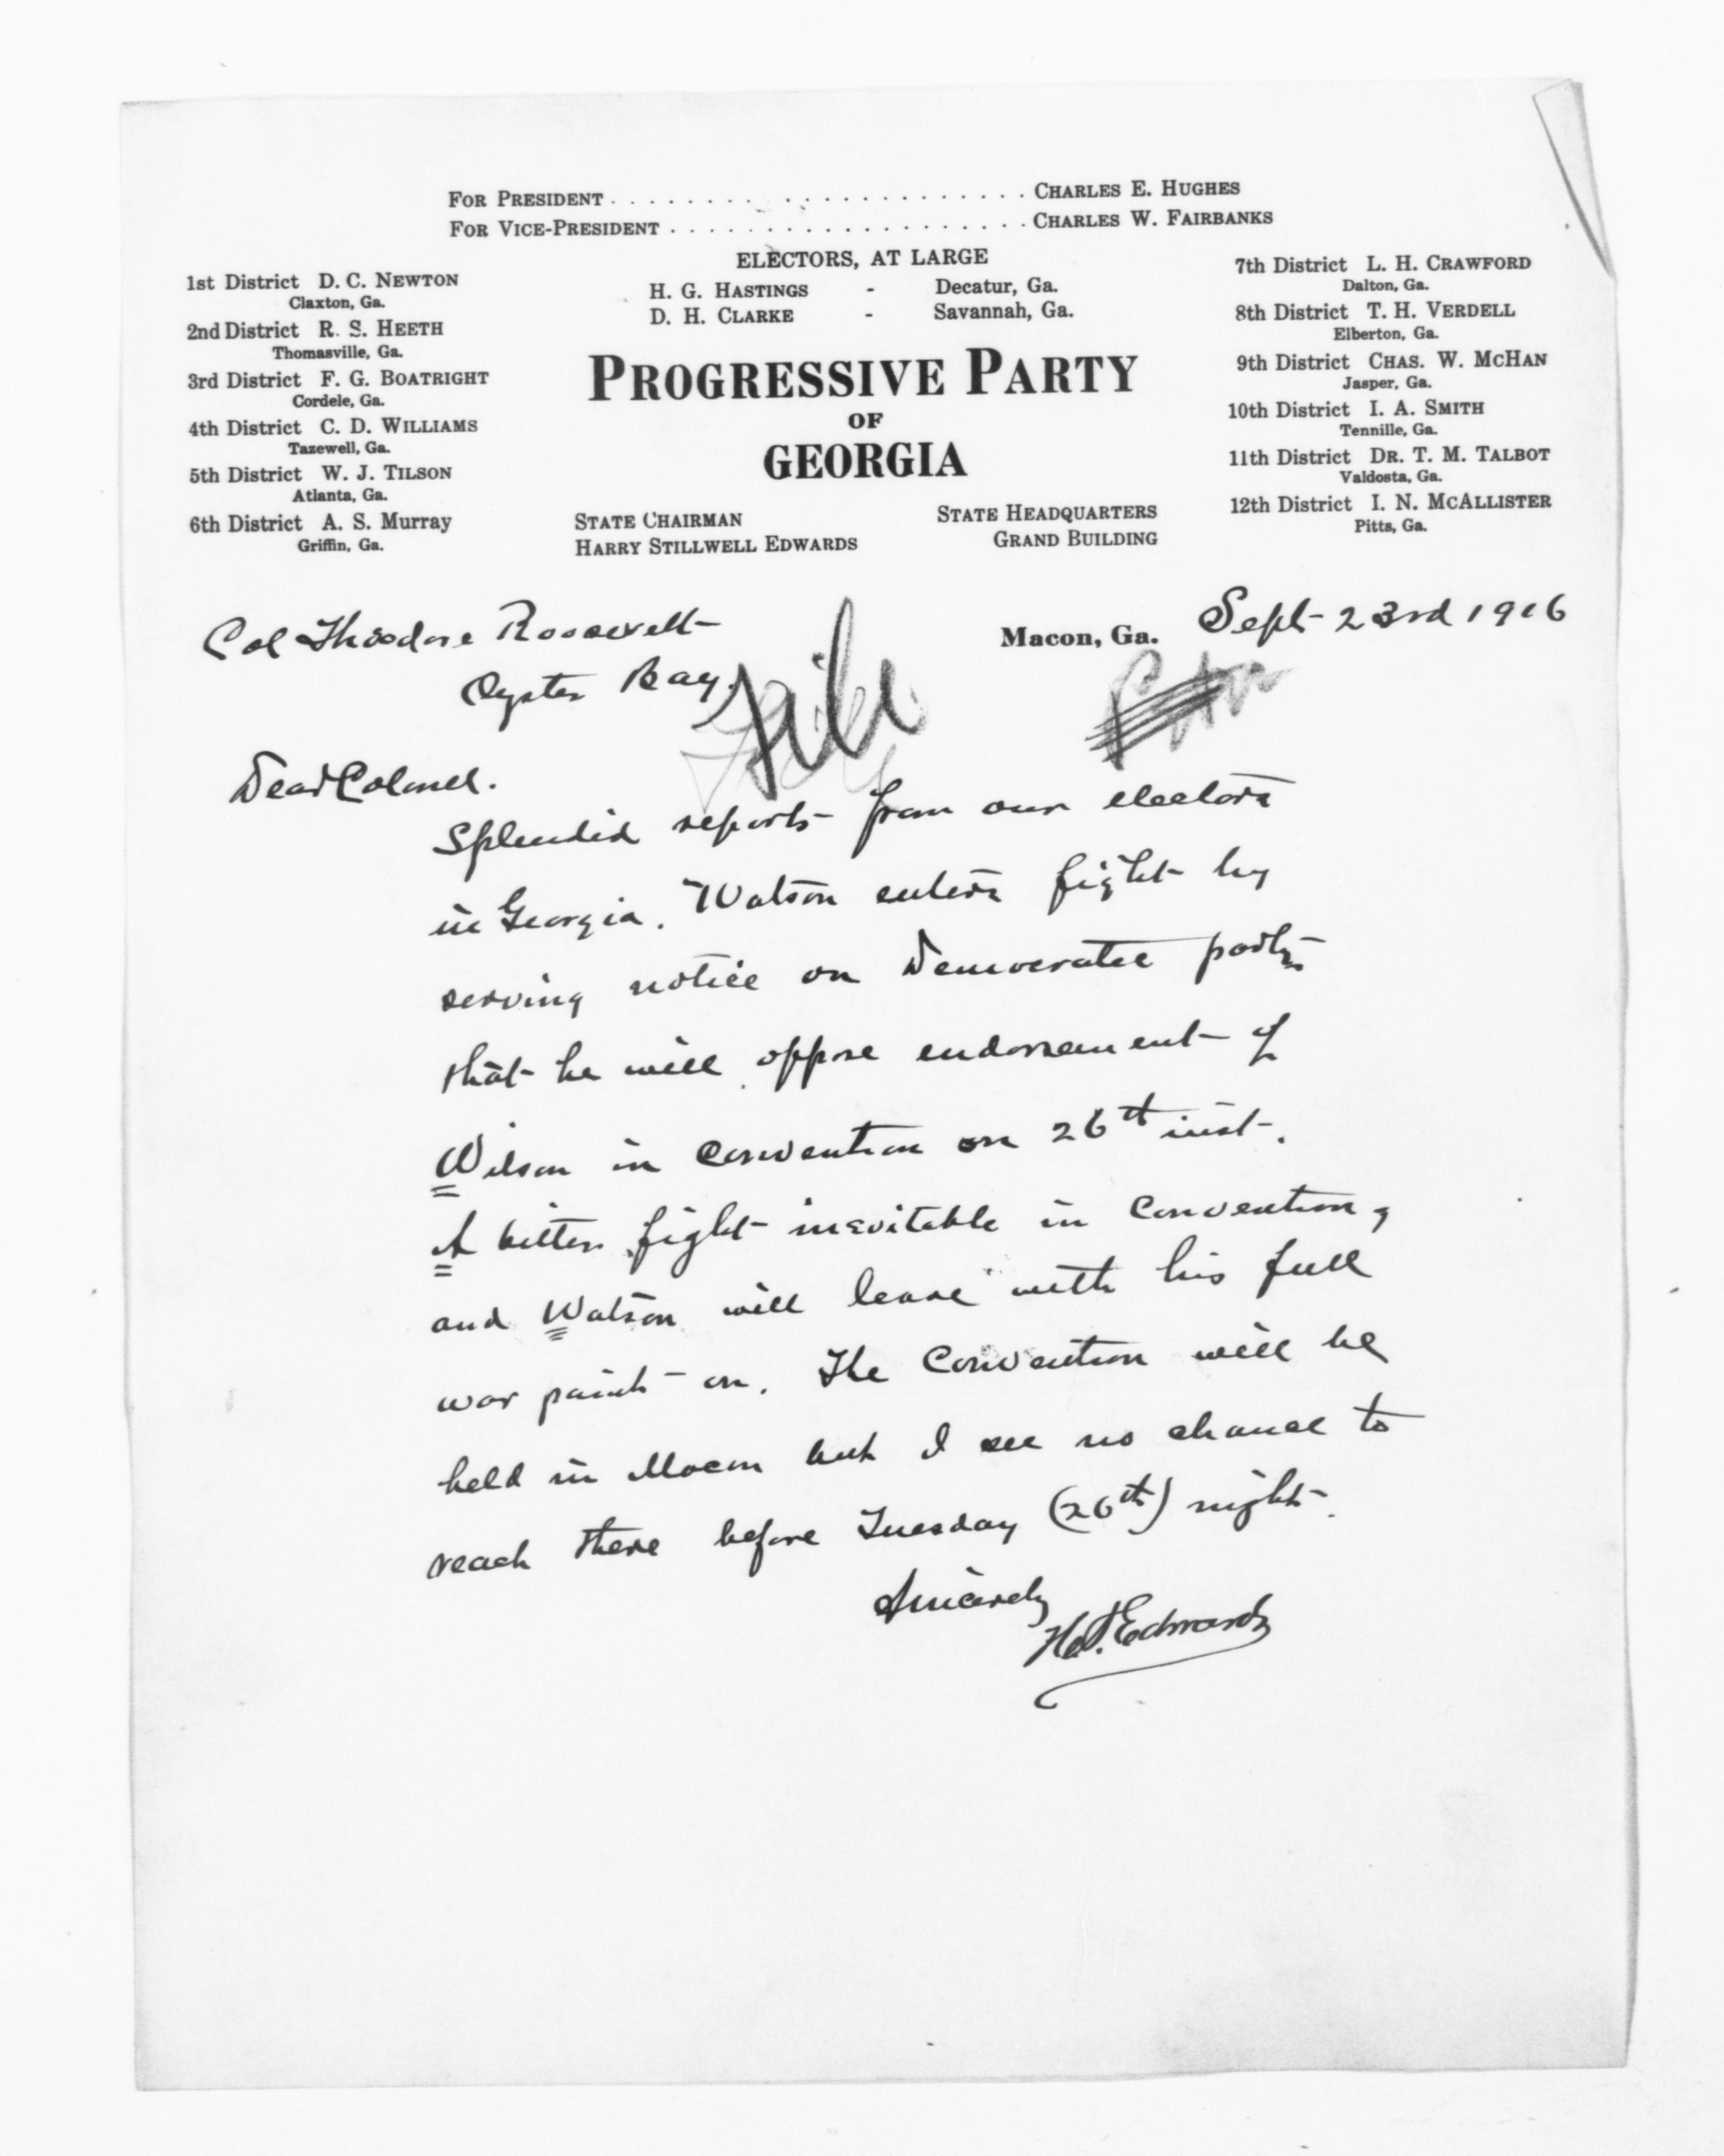 For President . . . . . . . . . . . . . . . . . . . . . . Charles E. Hughes
For Vice-President . . . . . . . . . . . . . . . . . . . Charles W. Fairbanks
Electors, at Large
H. G. Hastings - Decatur, Ga.
D. H. Clarke - Savannah, Ga.
1st District D. C. Newton
Claxton, Ga.
2nd District R. S. Heeth
Thomasville, Ga.
3rd District F. G. Boatright
Cordele, Ga.
4th District C. D. Williams
Tazewell, Ga.
5th District W. J. Tilson
Atlanta, Ga.
6th District A. S. Murray
Griffin, Ga.
Progressive Party
of
Georgia
State Chairman
Harry Stillwell Edwards
State Headquarters
Grand Building
7th District L. H. Crawford
Dalton, Ga.
8th District T. H. Verdell
Elberton, Ga.
9th District Chas. W. McHan
Jasper, Ga.
10th District I. A. Smith
Tennille, Ga.
11th District Dr. T. M. Talbot
Valdosta, Ga.
12th District I. N. McAllister
Pitts, Ga.
Macon, Ga. Sept 23rd 1916
Col Theodore Roosevelt
Oyster Bay.
File
Dear Colonel.
Splendid reports from our electors
in Georgia. Watson enters fight by
serving notice on Democratic party
that he will oppose endorsement of
Wilson in convention on 26th inst.
A bitter fight inevitable in convention,
and Watson will leave with his full
war paint on. The Convention will be
held in Macon but I see no chance to
reach there before Tuesday (26th) night.
Sincerely
H.S. Edwards